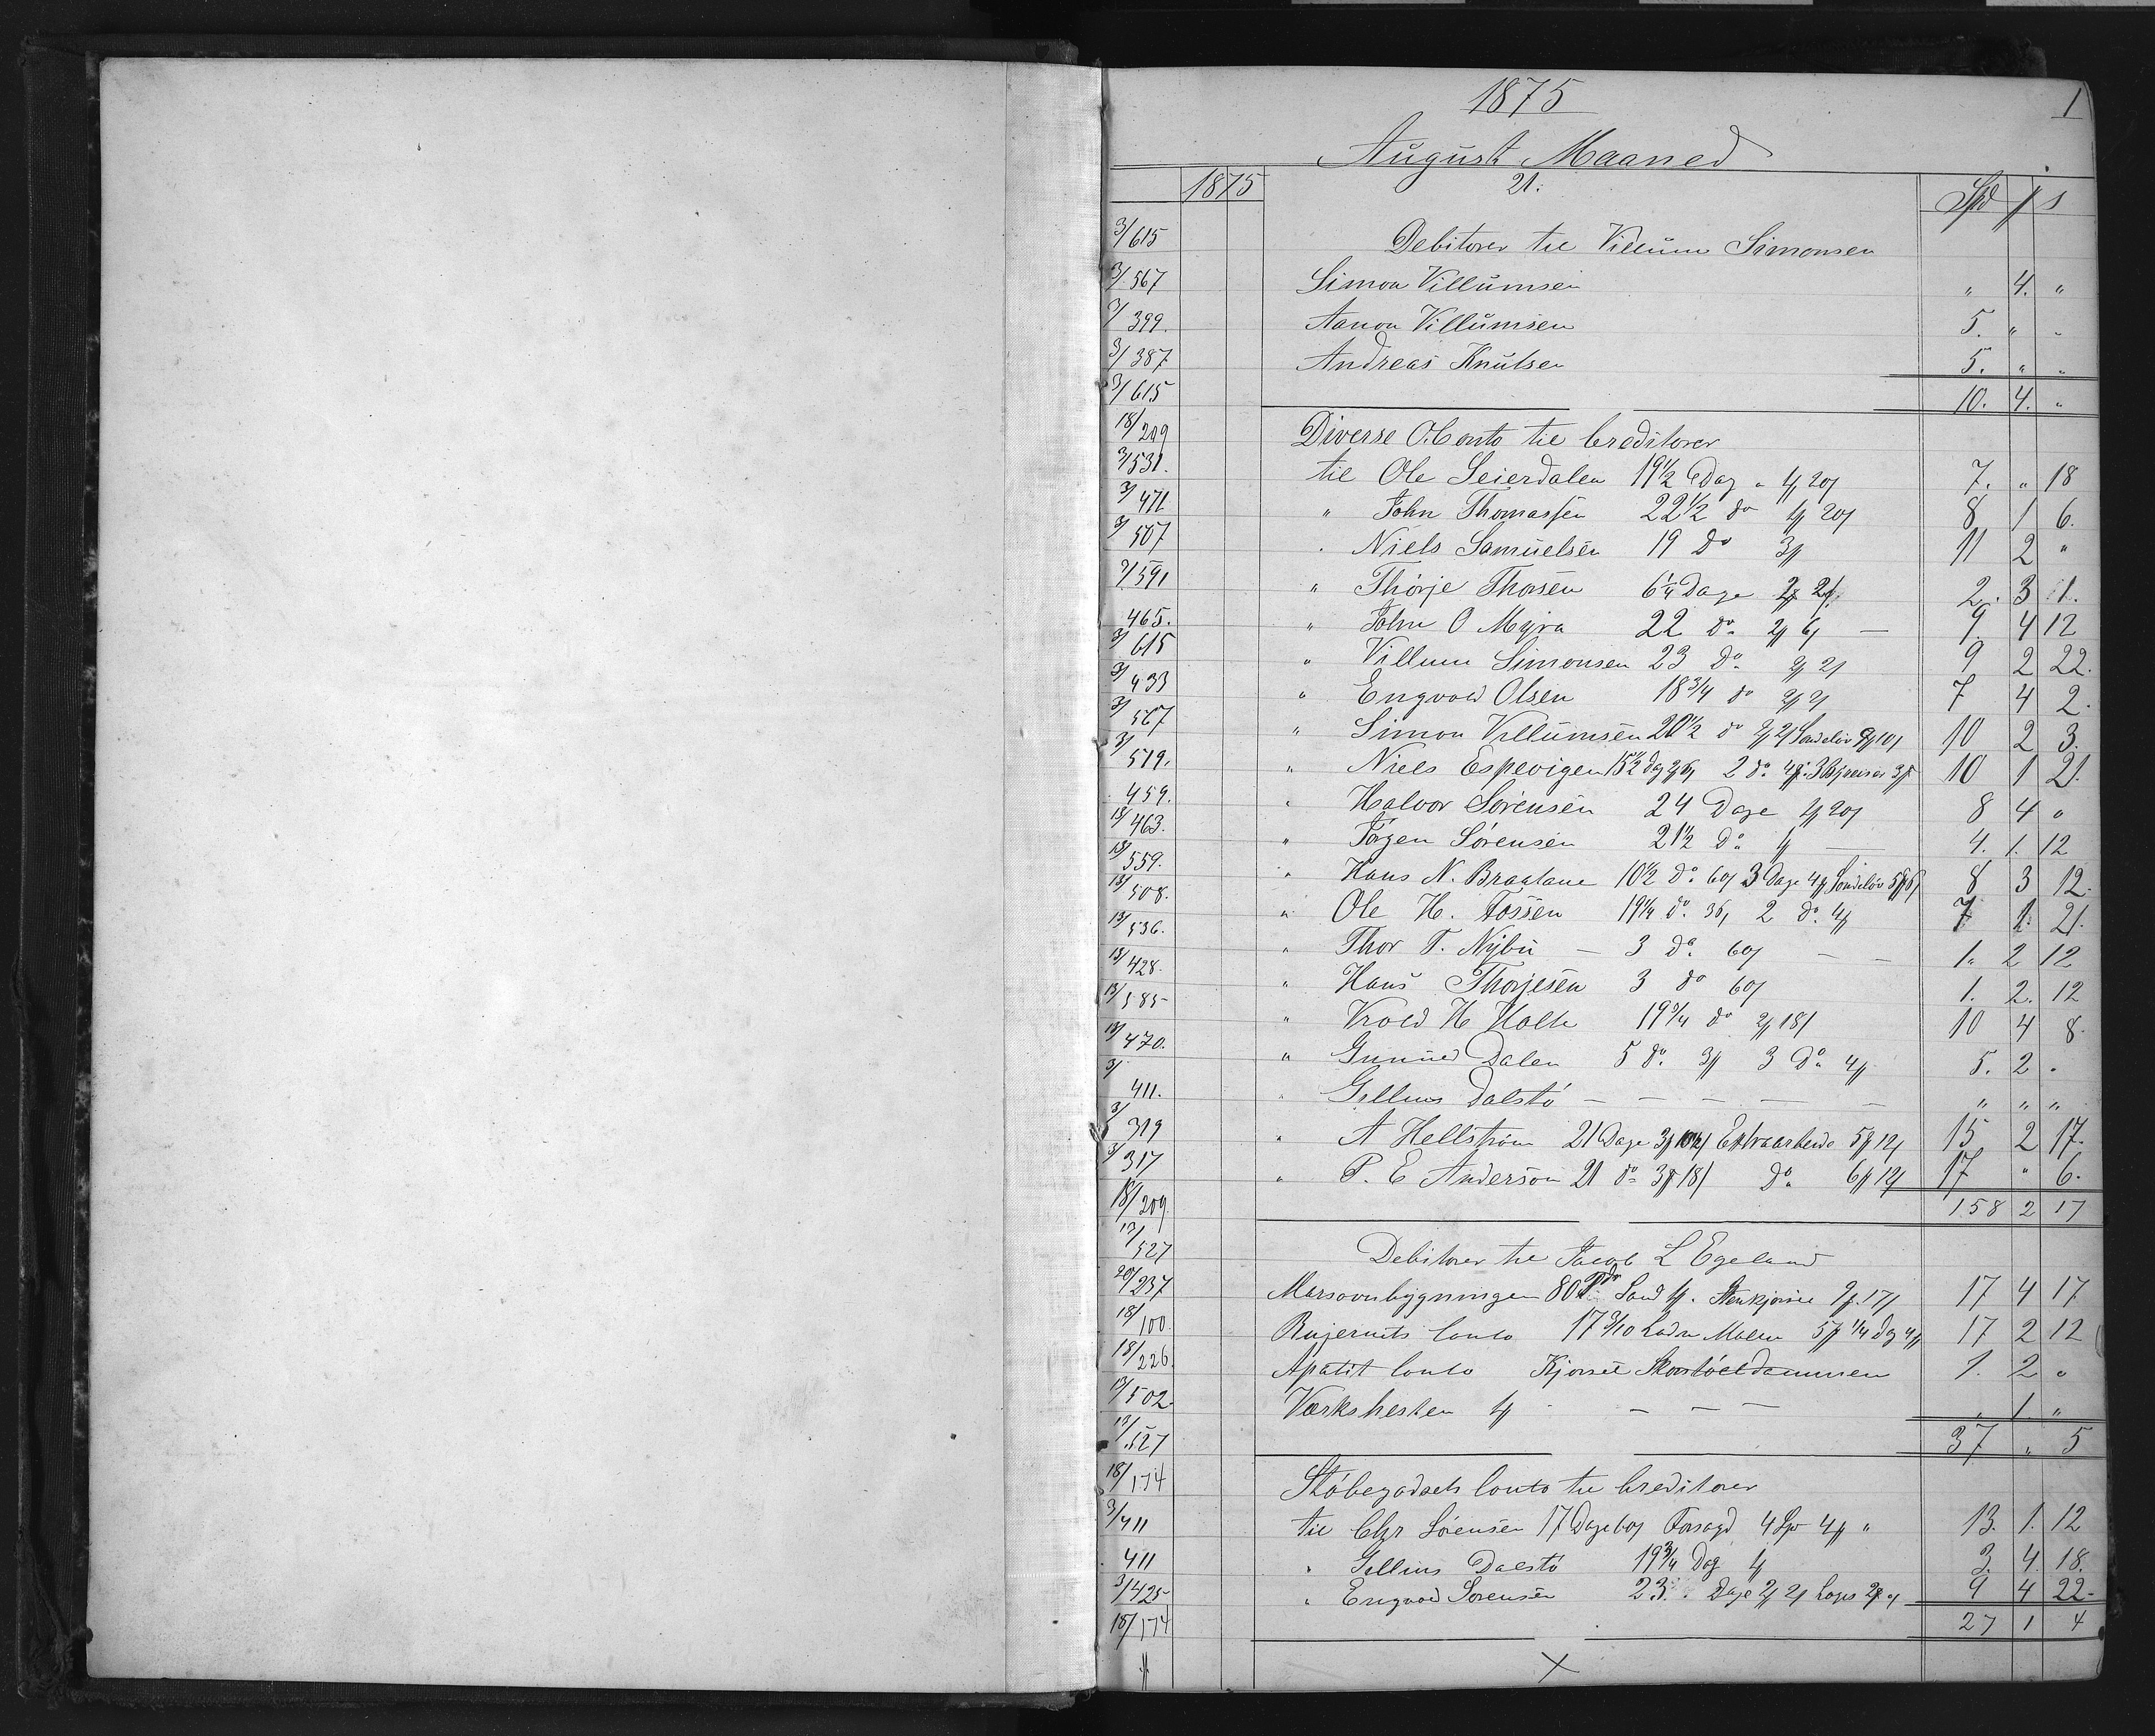 1875 1
August Maaned
1875 21. Spd ƒ s
3/615 Debitorer til Villum Simonsen
3/567 Simon Villumsen " 4. "
3/399. Aanon Villumsen 5. " "
3/387 Andreas Knutsen 5. " "
3/615 10. 4. "
18/209 Diverse O. Conto til Creditorer
3/531. til Ole Seierdalen 19½ Dag " 1ƒ 20ſ 7. " 18
3/471 " John Thomassen 22½ do 1ƒ 20ſ 8 1 6.
3/507 " Niels Samuelsen 19 do 3ƒ 11 2 "
3/591 " Thorje Thorsen 6¼ Dage 2ƒ 2ſ 2. 3 1.
465. " John O Myra 22 do 2ƒ 6ſ — 9. 4 12
3/615 " Villum Simonsen 23 do 2ƒ 2ſ 9 2 22.
3/433 " Engvold Olsen 18¾ do 2ƒ 2ſ 7 4 2.
3/567 " Simon Villumsen 20½ do 2ƒ 2ſ 10 2 3.
3/519. " Niels Espevigen 15½ dag 2ƒ 6ſ 2 do 4ƒ 10 1 21.
459. " Halvor Sørensen 24 Dage 1ƒ 20ſ 8 4 "
13/463. " Jørgen Sørensen 21½ do 1ƒ — 4. 1. 12
13/559. " Hans N. Braatane 10½ do 60ſ 3 Dage 4ƒ 8 3 12.
13/508. " Ole H. Fossen 19¼ do 36ſ 2 do 4ƒ 7 1. 21.
13/536. " Thor T. Nybu — 3 do 60ſ — — 1. 2 12
13/428. " Hans Thorjesen 3 do 60ſ 1. 2. 12
13/585 " Vrold H Holte 19¾ do 2ƒ 18ſ 10 4 8.
13/470. " Gunuld Dalen 5 do 3ƒ 3 do 4ƒ 5. 2 "
3/411. " Gellius Dalstø — — — — — " " "
3/319 " A Hellstrøm 21 Dage 3ƒ Extraarbeide 5ƒ 12ſ 15 2 17.
3/317 " P. E Anderson 21 do 3ƒ 18ſ do 6ƒ 12ſ 17 " 6.
18/209 158 2 17
13/527 Debitorer til Jacob L Egeland
20/237 Marsovnbygningen 80 Sand 1ƒ. 2ƒ. 17ſ 17 4 17
18/100. Rujernets Conto 17 3/10 Malm 5ƒ ¼ Dag 4ƒ 17 2 12
18/226. Apatit Conto Kjørsel 1. 2 "
13/502. Værkshesten 1ƒ — — — " 1. "
13/527 37 " 5
18/174 Støbegodsets Conto til Creditorer
3/411 til Chr Sørensen 17 Dage 60ſ 4 Spd 4ƒ " 13. 1. 12
411 " Gellius Dalstø 19¾ Dag 1ƒ 3. 4. 18.
3/425 " Engvold Sørensen 23. Dage 2ƒ 2ſ 9 4 22.
18/174 27 1 4